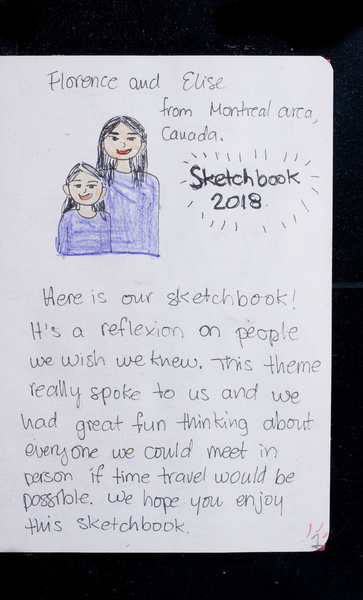 Florence and Elise
from Montreal area,
Canada.
Sketchbook
2018.
Here is our sketchbook!
It's a reflexion on people
we wish we knew. This theme
really spoke to us and we
had great fun thinking about
everyone we could meet in
person if time travel would be
possible. We hope you enjoy
this sketchbook.
1